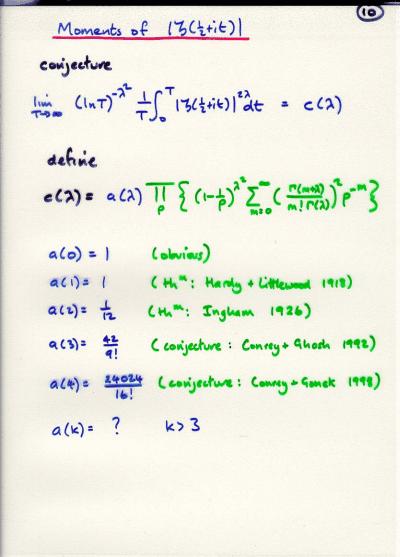 10
Moments of |ζ(½+it)|
conjecture
lim T→∞ (ln T)^{-λ²} 1/T ∫₀^T |ζ(½+it)|^{2λ} dt = c(λ)
define
c(λ) = a(λ) ∏_p { (1-1/p)^{λ²} Σ_{m=0}^∞ (Γ(m+λ)/(m! Γ(λ)))² p^{-m} }
a(0) = 1 (obvious)
a(1) = 1 (thᵐ: Hardy + Littlewood 1918)
a(2) = 1/12 (thᵐ: Ingham 1926)
a(3) = 42/9! (conjecture: Conrey + Ghosh 1992)
a(4) = 24024/16! (conjecture: Conrey + Gonek 1998)
a(k) = ? k > 3